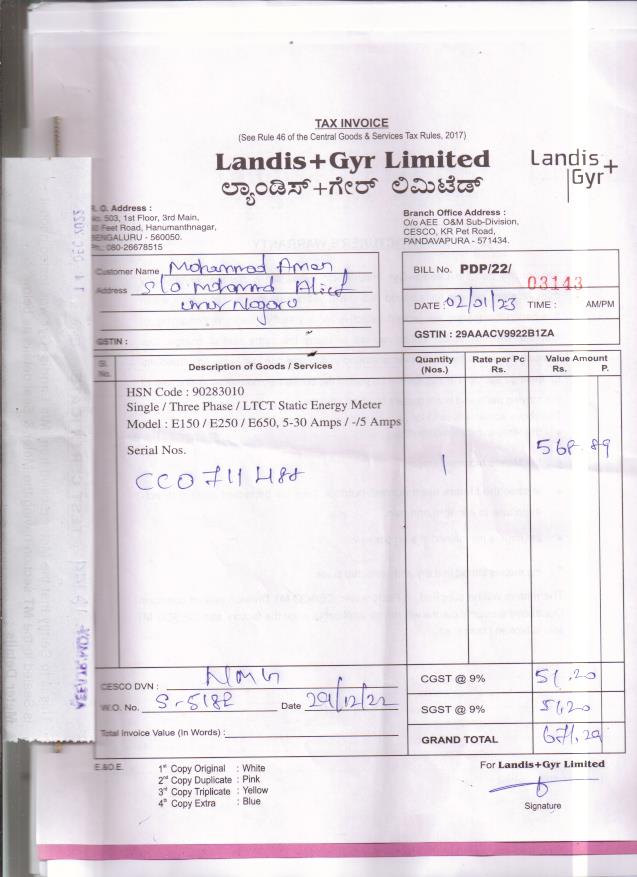 TAX INVOICE
(See Rule 46 of the Central Goods & Services Tax Rules, 2017)
Landis+Gyr Limited
ಲ್ಯಾಂಡಿಸ್+ಗೇರ್ ಲಿಮಿಟೆಡ್
Landis
Gyr+
R. O. Address :
No. 503, 1st Floor, 3rd Main,
Feet Road, Hanumanthnagar,
BENGALURU - 560050.
Ph.: 080-26678515
Branch Office Address :
O/o AEE O&M Sub-Division,
CESCO, KR Pet Road,
PANDAVAPURA - 571434.
Customer Name Mohammad Aman
Address S/o Mohammd
umar Nagara
GSTIN :
BILL No. PDP/22/ 03143
DATE : 02/01/23 TIME : AM/PM
GSTIN : 29AAACV9922B1ZA
Sl. No. Description of Goods / Services Quantity (Nos.) Rate per Pc Rs. Value Amount Rs. P.
HSN Code : 90283010
Single / Three Phase / LTCT Static Energy Meter
Model : E150 / E250 / E650, 5-30 Amps / -/5 Amps
Serial Nos.
CC0711488 1 568.89
CESCO DVN :
W.O. No. S-5182 Date 29/12/22
Total Invoice Value (In Words) :
CGST @ 9% 51.20
SGST @ 9% 51.20
GRAND TOTAL 671.29
E.&O.E.
1st Copy Original : White
2nd Copy Duplicate : Pink
3rd Copy Triplicate : Yellow
4th Copy Extra : Blue
For Landis+Gyr Limited
Signature